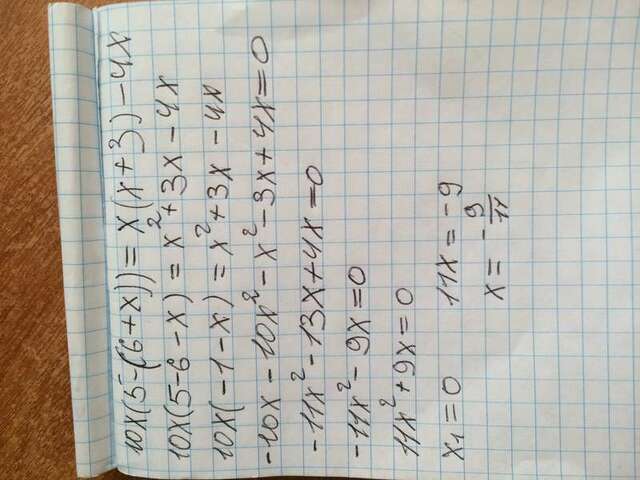 10x(5-(6+x))=x(x+3)-4x
10x(5-6-x)=x²+3x-4x
10x(-1-x)=x²+3x-4x
-10x-10x²-x²-3x+4x=0
-11x²-13x+4x=0
-11x²-9x=0
11x²+9x=0
x₁=0 11x=-9
x=-9/11